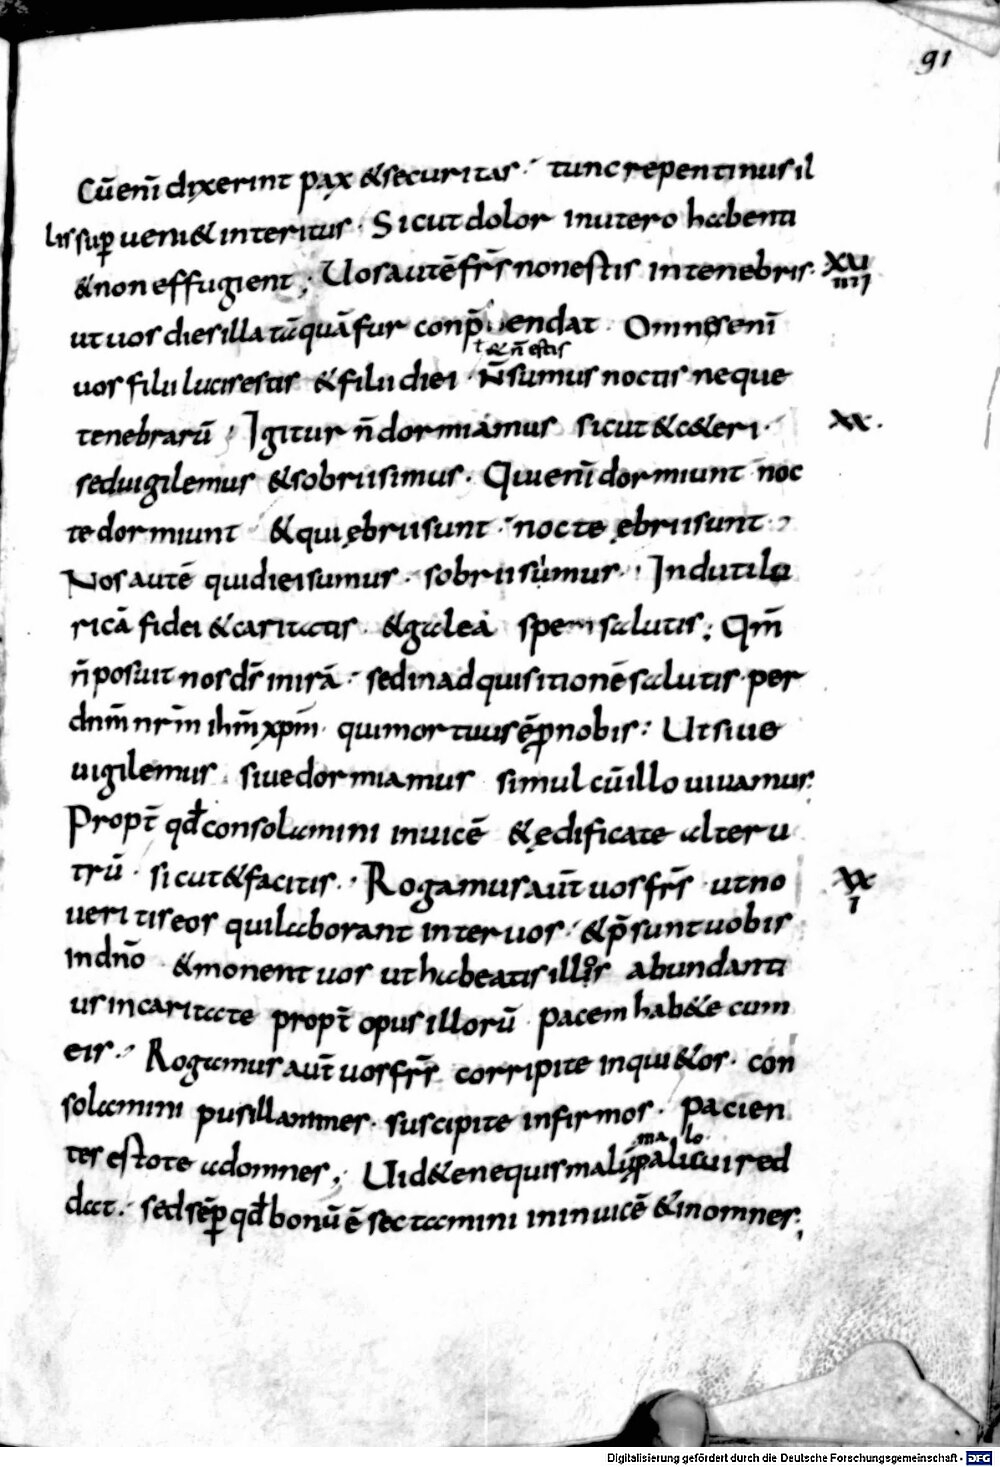 91
Cū eni̅ dixerint pax & securitas · tunc repentinus il
lis sup̲ ueni& interitus · Sicut dolor in utero habenti
& non effugient ; Uos autē fr̅s non estis in tenebris · XVIIII
ut uos dies illa tāquā fur conp̄hendat · Omnes eni̅
ł & n̄ estis
uos filii lucis estis & filii diei · N̄ sumus noctis neque
tenebrarū ; Igitur n̄ dormiamus sicut & c&eri · XX ·
sed uigilemus & sobrii simus · Qui eni̅ dormiunt noc
te dormiunt & qui ębrii sunt · nocte ębrii sunt ·
Nos autē qui diei sumus · sobrii simus · Induti lo
ricā fidei & caritatis · & galeā spem salutis ; Qm̅
n̄ posuit nos ds̅ in irā · sed in adquisitionē salutis · per
dnm̅ nrm̅ ihm̅ xpm̅ · qui mortuus ē p̲ nobis : Ut siue
uigilemus · siue dormiamus simul cū illo uiuamus ;
Propt̄ qđ consolamini inuicē & ędificate alteru
trū · sicut & facitis · Rogamus aut̄ uos fr̅s · ut no XXI
ueritis eos qui laborant inter uos · & p̄sunt uobis
in dn̅o & monent uos ut habeatis illos abundanti
us in caritate propt̄ opus illorū · pacem hab&e cum
eis · Rogamus aut̄ uos fr̅s corripite inqui&os · con
solamini pusillanimes · suscipite infirmos · pacien
tes estote ad omnes ; Uid&e ne quis malū p̲ alicui red
ma lo
dat · sed sēp̲ qđ bonū ē sectamini in inuicē & in omnes ;
Digitalisierung gefördert durch die Deutsche Forschungsgemeinschaft - DFG